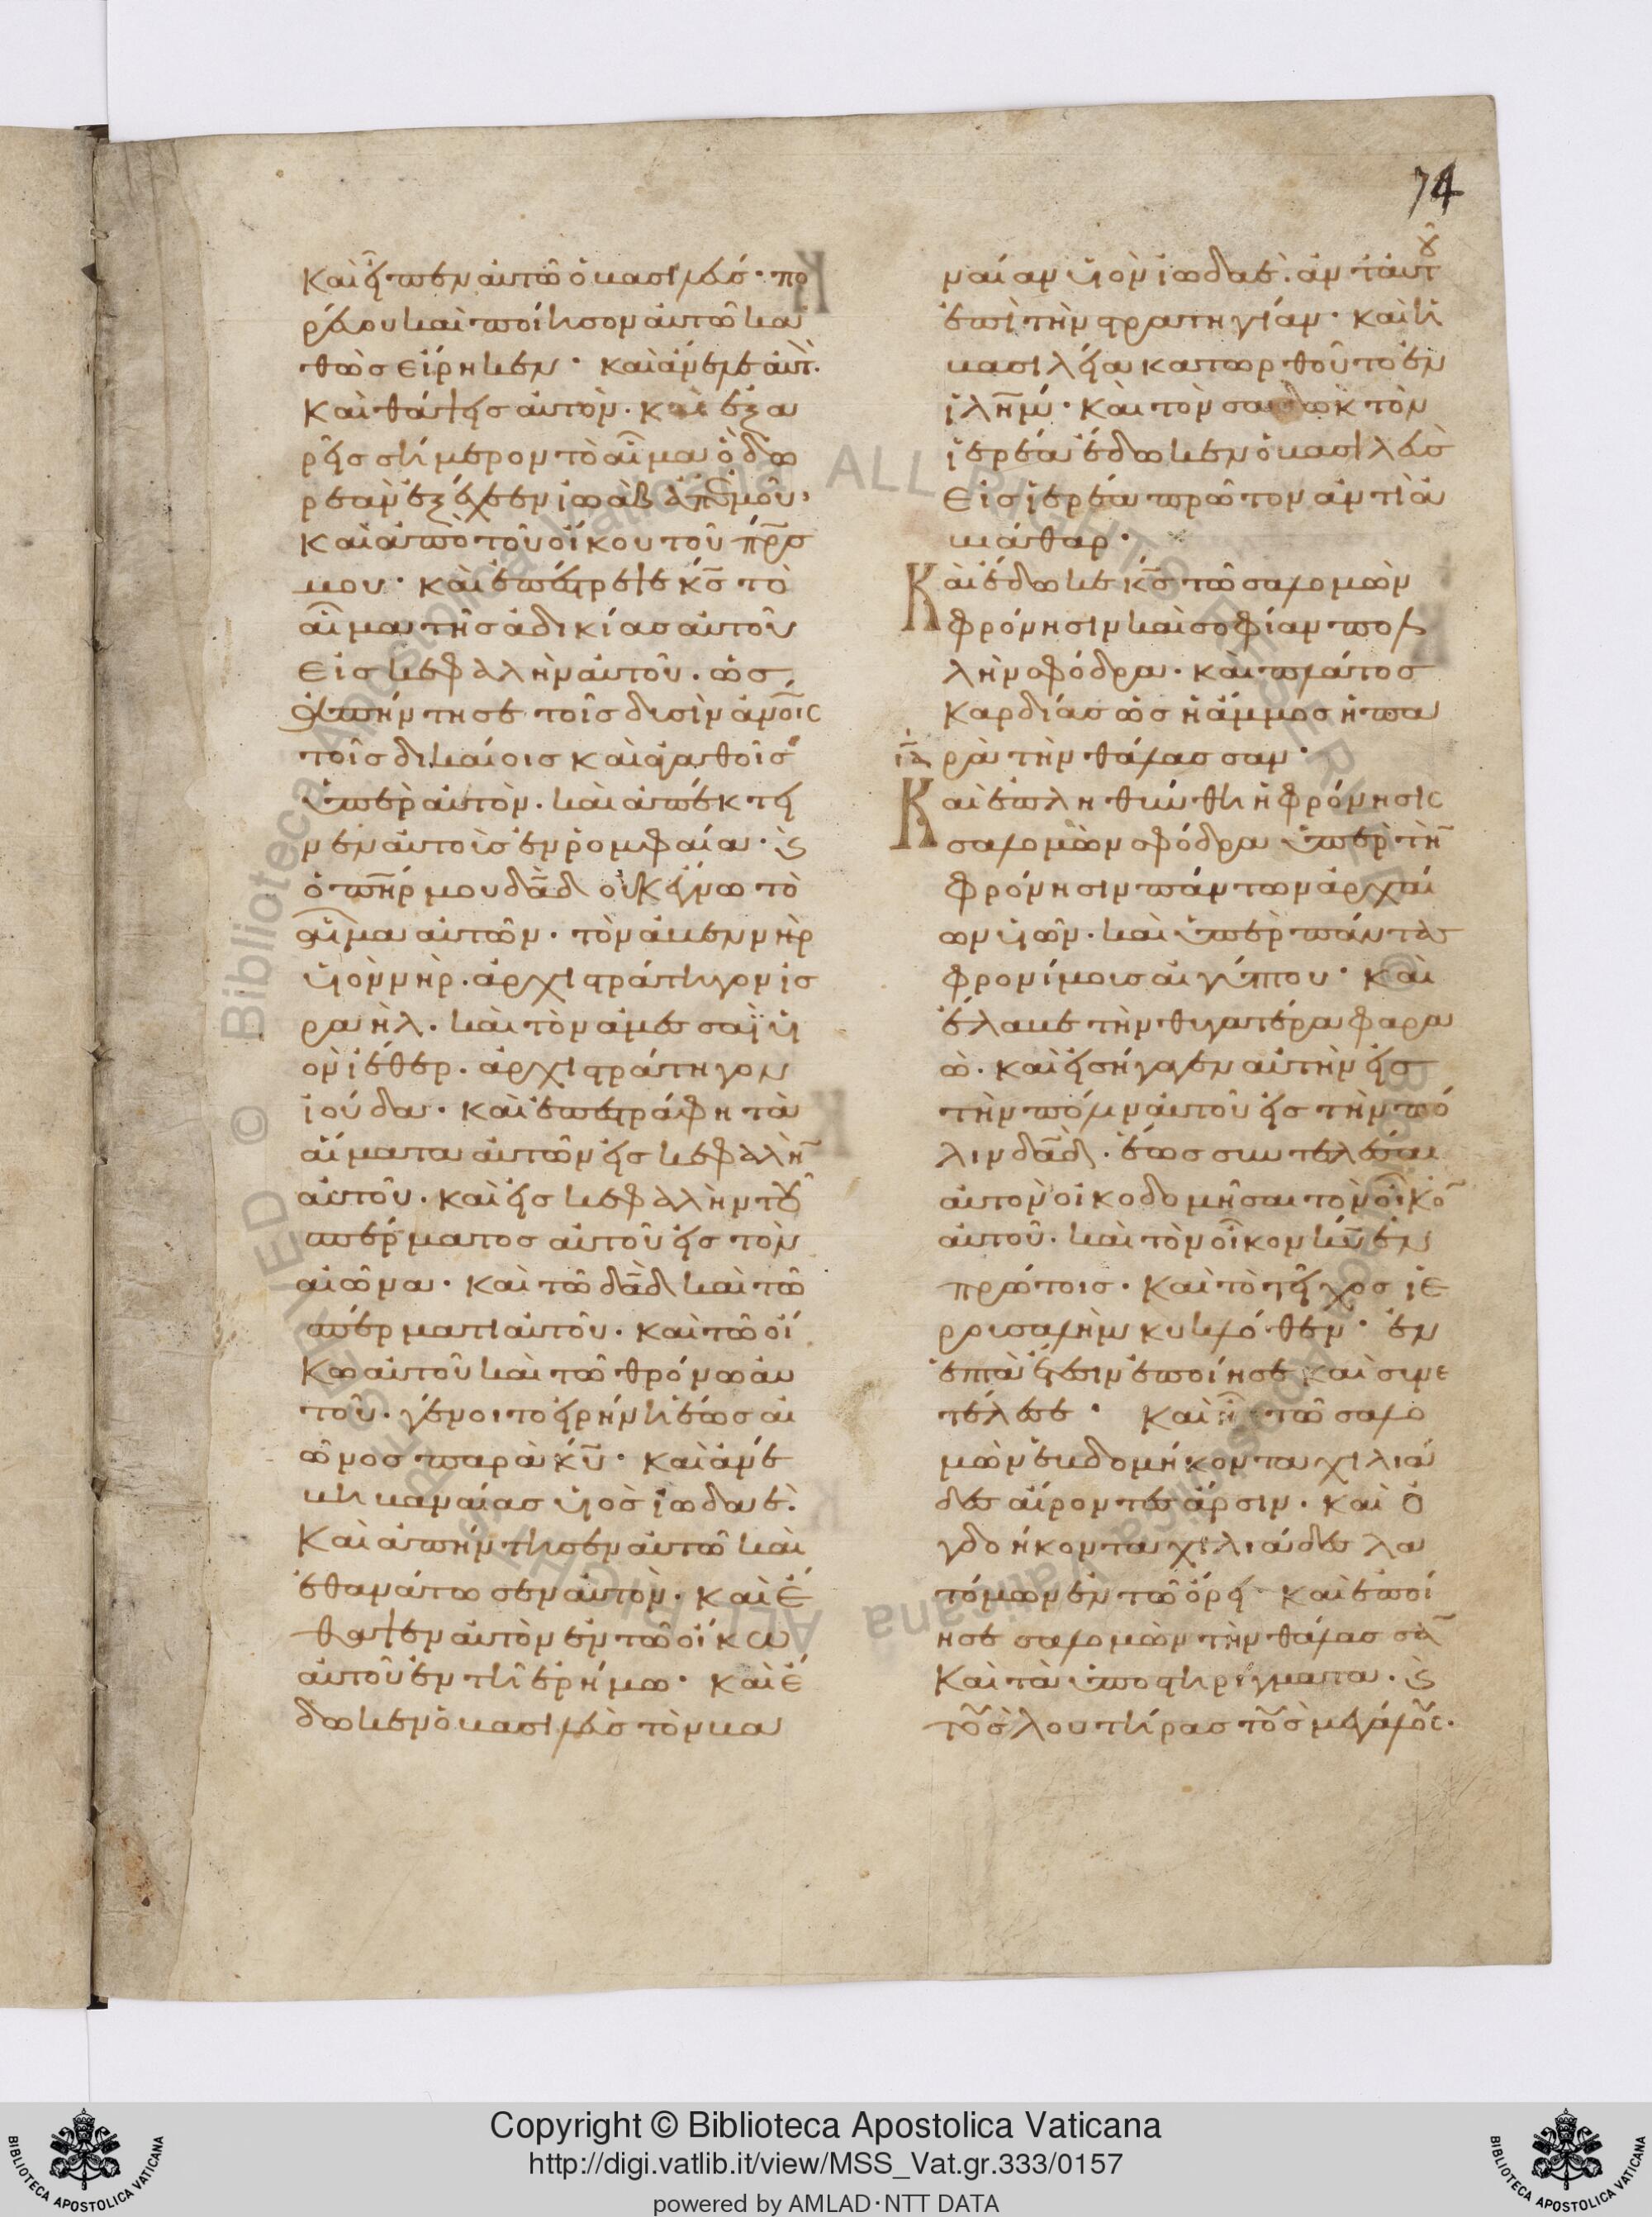 74
καὶ εἶπεν αὐτῶ ὁ βασιλεύσ· πο
ρεύου καὶ ποίησον αὐτῶ κα
θὼσ εἴρηκεν· καὶ ἄνελε αὐτ.
καὶ θάψεισ αὐτὸν. καὶ ἐξα
ρεῖσ σήμερον τὸ αἷμα ὃ δω
ρεὰν ἐξέχεεν ἰωὰβ ἀπ' ἐμοῦ·
καὶ ἀπὸ τοῦ οἴκου τοῦ πρσ
μου· καὶ ἐπέστρεψε κσ τὸ
αἷμα τῆσ ἀδικίασ αὐτοῦ
εἰσ κεφαλὴν αὐτοῦ. ὡσ
ἀπήντησε τοῖσ δυσὶν ἀνοισ
τοῖσ δικαίοισ καὶ ἀγαθοῖσ
ὑπὲρ αὐτὸν. καὶ ἀπέκτει
νεν αὐτοὺσ ἐν ρομφαία· ϗ
ὁ πηρ μου δαδ οὐκ ἔγνω τὸ
αἷμα αὐτῶν. τὸν ἀβεννὴρ
υἱὸν νὴρ. ἀρχιστράτηγον ισ
ραὴλ. καὶ τὸν ἀμεσσαῒ υἱ
ὸν ἰέθερ. ἀρχιστράτηγον
ἰούδα· καὶ ἐπεστράφη τὰ
αἵματα αὐτῶν εἰσ κεφαλὴν
αὐτοῦ. καὶ εἰσ κεφαλὴν τοῦ
σπέρματοσ αὐτοῦ εἰσ τὸν
αἰῶνα· καὶ τῶ δαδ καὶ τῶ
σπέρματι αὐτοῦ. καὶ τῶ οἴ
κω αὐτοῦ καὶ τῶ θρόνω αὐ
τοῦ. γένοιτο εἰρήνη ἕωσ αἰ
ῶνοσ παρὰ κυ· καὶ ἀνέ
βη βαναίασ υἱὸσ ἰωδαέ.
καὶ ἀπήντησεν αὐτῶ καὶ
ἐθανάτωσεν αὐτὸν. καὶ ἔ
θαψεν αὐτὸν ἐν τῶ οἴκω
αὐτοῦ ἐν τῆ ἐρήμω· καὶ ἔ
δωκεν ὁ βασιλεὺσ τὸν βα
ναίαν υἱὸν ἰωδαέ. ἀντ' αὐτοῦ
ἐπὶ τὴν στρατηγίαν· καὶ ἡ
βασιλεία κατωρθοῦτο ἐν
ιλημ· καὶ τὸν σαδὼκ τὸν
ἱερέα ἔδωκεν ὁ βασιλεὺσ
εἰσ ἱερέα πρῶτον ἀντὶ ἀ
βιάθαρ·
Καὶ ἔδωκε κσ τῶ σαλομὼν
φρόνησιν καὶ σοφίαν πολ
λὴν σφόδρα· καὶ πλάτοσ
καρδίασ ὡσ ἡ ἄμμοσ ἡ πα
ρὰ τὴν θάλασσαν·
Καὶ ἐπληθύνθη ἡ φρόνησισ
σαλομὼν σφόδρα ὑπὲρ τὴν
φρόνησιν πάντων ἀρχαί
ων υἱῶν. καὶ ὑπὲρ πάντασ
φρονίμουσ αἰγύπτου· καὶ
ἔλαβε τὴν θυγατέρα φαρα
ώ. καὶ εἰσήγαγεν αὐτὴν εἰσ
τὴν πόλιν αὐτοῦ εἰσ τὴν πό
λιν δαδ. ἕωσ συντελέσαι
αὐτὸν οἰκοδομῆσαι τὸν οἶκον
αὐτοῦ. καὶ τὸν οἶκον κυ ἐν
πρώτοισ. καὶ τὸ τεῖχοσ ἱε
ρουσαλὴμ κυκλόθεν· ἐν
ἑπτὰ ἔτεσιν ἐποίησε καὶ συνε
τέλεσε· καὶ ἦν τῶ σαλο
μὼν ἑβδομήκοντα χιλιά
δεσ αἴροντεσ ἄρσιν. καὶ ὀ
γδοήκοντα χιλιάδεσ λα
τόμων ἐν τῶ ὄρει· καὶ ἐποί
ησε σαλομὼν τὴν θάλασσαν
καὶ τὰ ὑποστηρίγματα. ϗ
τοὺσ λουτῆρασ τοὺσ μεγάλουσ.
Copyright © Biblioteca Apostolica Vaticana
http://digi.vatlib.it/view/MSS_Vat.gr.333/0157
powered by AMLAD·NTT DATA